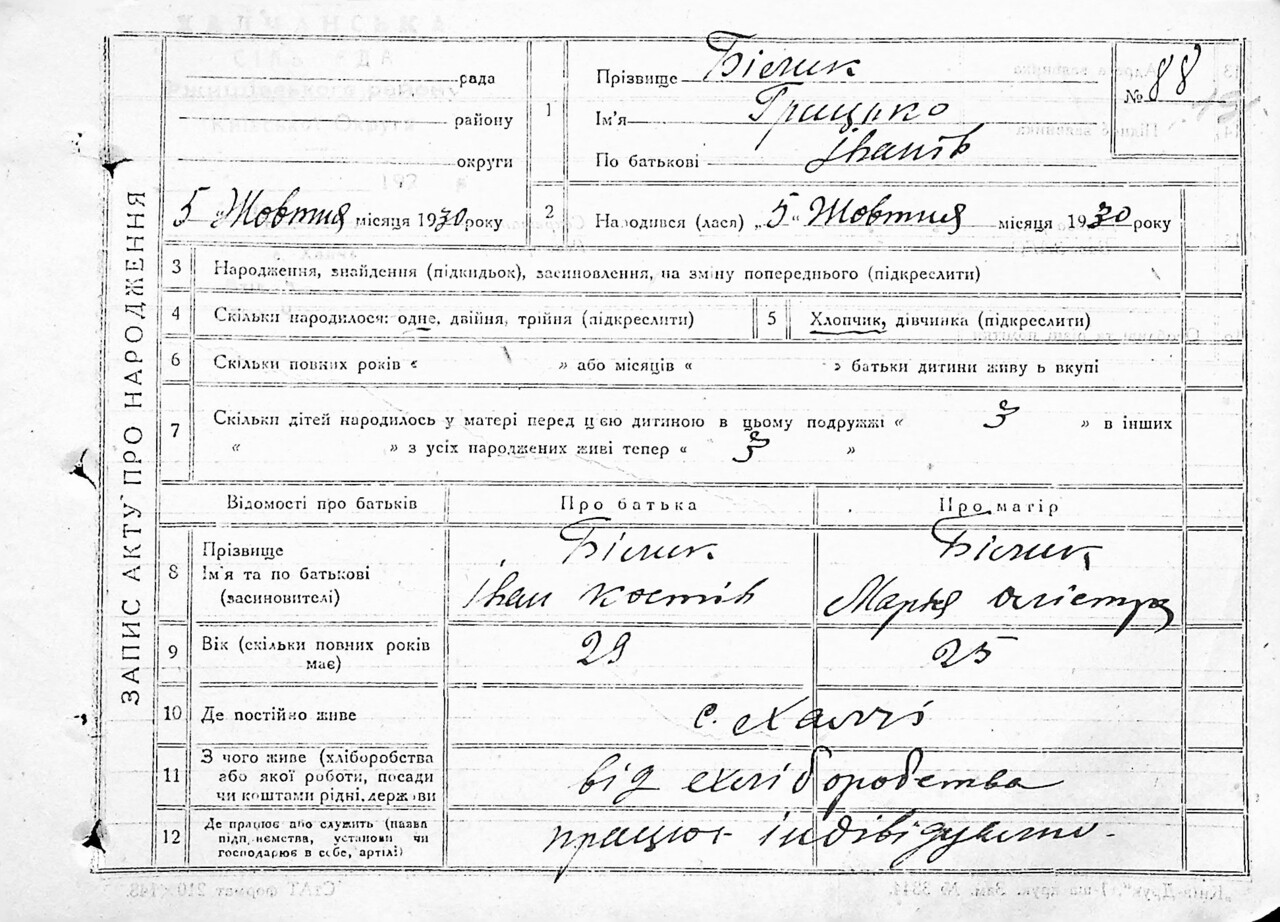 ХАЛЧАНСЬКА
СІЛЬРАДА
Ржищівського району
Київської Округи
192 в
рада
району
округи
5 „ Жовтня місяця 1930 року
1
Прізвище Білик
Ім'я Грицько
По батькові Іванів
№ 88
2
Народився (лася) „ 5 “ Жовтня місяця 1930 року
ЗАПИС АКТУ ПРО НАРОДЖЕННЯ
3 Народження, знайдення (підкидьок), засиновлення, на зміну попереднього (підкреслити)
4 Скільки народилося: одне, двійня, трійня (підкреслити)
5 Хлопчик, дівчинка (підкреслити)
6 Скільки повних років « » або місяців « » батьки дитини живуть вкупі
7 Скільки дітей народилось у матері перед цією дитиною в цьому подружжі « 3 » в інших
« » з усіх народжених живі тепер « 3 »
Відомості про батьків Про батька Про матір
8 Прізвище Білик Білик
Ім'я та по батькові Іван Костів Марія
(засиновителі)
9 Вік (скільки повних років має) 29 25
10 Де постійно живе с. Халчі
11 З чого живе (хліборобства
або якої роботи, посади від хліборобства
чи коштами рідні, держави
12 Де працює або служить (назва
підприємства, установи чи працює індівідуально.
господарює в себе, артілі)
СтАТ формат 210×148.
„Київ-Друк“, 1-ша друк. Зам. № 3344.